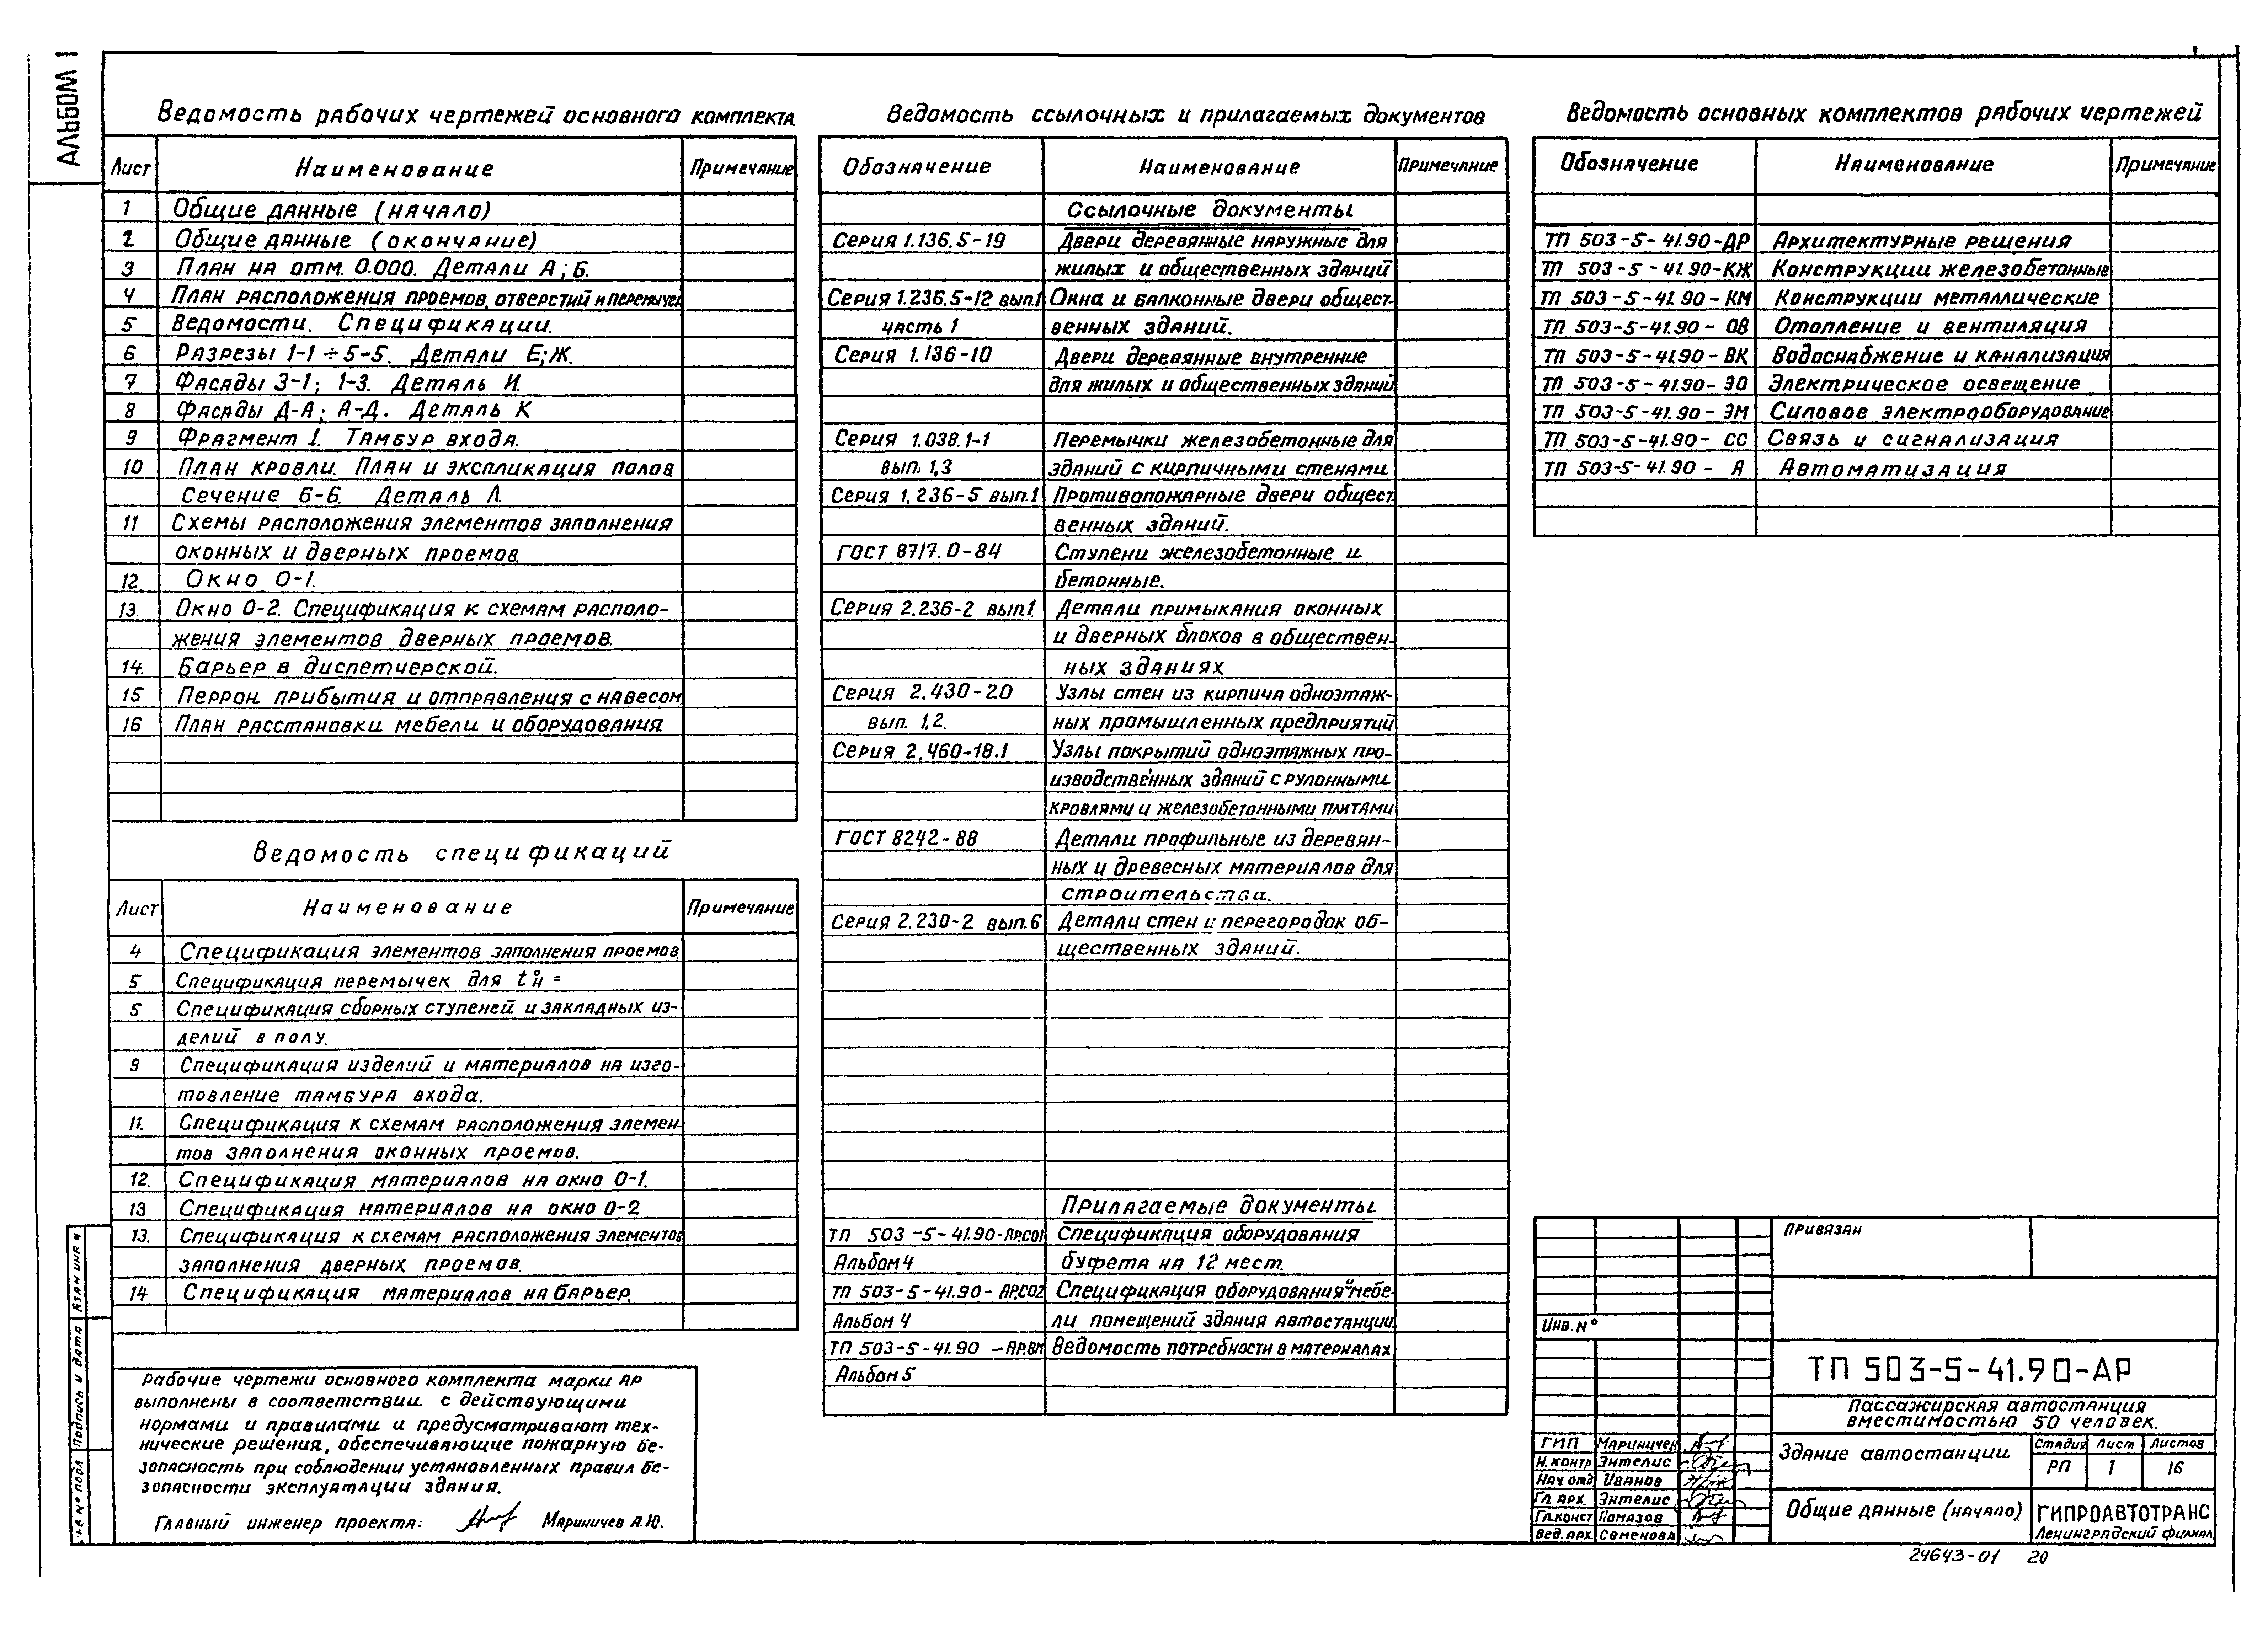 АЛЬБОМ 1
Ведомость рабочих чертежей основного комплекта
Лист Наименование Примечание
1 Общие данные (начало)
2 Общие данные (окончание)
3 План на отм. 0.000. Детали А; Б.
4 План расположения проемов, отверстий и перемычек
5 Ведомости. Спецификации.
6 Разрезы 1-1 ÷ 5-5. Детали Е; Ж.
7 Фасады 3-1; 1-3. Деталь И.
8 Фасады Д-А; А-Д. Деталь К
9 Фрагмент 1. Тамбур входа.
10 План кровли. План и экспликация полов
Сечение 6-6. Деталь Л.
11 Схемы расположения элементов заполнения
оконных и дверных проемов.
12. Окно О-1.
13. Окно О-2. Спецификация к схемам располо-
жения элементов дверных проемов.
14. Барьер в диспетчерской.
15 Перрон прибытия и отправления с навесом
16 План расстановки мебели и оборудования
Ведомость спецификаций
Лист Наименование Примечание
4 Спецификация элементов заполнения проемов
5 Спецификация перемычек для t°н =
5 Спецификация сборных ступеней и закладных из-
делий в полу.
9 Спецификация изделий и материалов на изго-
товление тамбура входа.
11. Спецификация к схемам расположения элемен-
тов заполнения оконных проемов.
12. Спецификация материалов на окно О-1.
13 Спецификация материалов на окно О-2
13. Спецификация к схемам расположения элементов
заполнения дверных проемов.
14 Спецификация материалов на барьер.
Рабочие чертежи основного комплекта марки АР
выполнены в соответствии с действующими
нормами и правилами и предусматривают тех-
нические решения, обеспечивающие пожарную бе-
зопасность при соблюдении установленных правил бе-
зопасности эксплуатации здания.
Главный инженер проекта: Мариничев А.Ю.
Ведомость ссылочных и прилагаемых документов
Обозначение Наименование Примечание
Ссылочные документы
Серия 1.136.5-19 Двери деревянные наружные для
жилых и общественных зданий
Серия 1.236.5-12 вып.1 Окна и балконные двери общест-
часть 1 венных зданий.
Серия 1.136-10 Двери деревянные внутренние
для жилых и общественных зданий
Серия 1.038.1-1 Перемычки железобетонные для
вып. 1,3 зданий с кирпичными стенами
Серия 1.236-5 вып.1 Противопожарные двери общест
венных зданий.
ГОСТ 8717.0-84 Ступени железобетонные и
бетонные.
Серия 2.236-2 вып1. Детали примыкания оконных
и дверных блоков в обществен-
ных зданиях
Серия 2.430-20 Узлы стен из кирпича одноэтаж-
вып. 1,2. ных промышленных предприятий
Серия 2.460-18.1 Узлы покрытий одноэтажных про-
изводственных зданий с рулонными
кровлями и железобетонными плитами
ГОСТ 8242-88 Детали профильные из деревян-
ных и древесных материалов для
строительства.
Серия 2.230-2 вып.6 Детали стен и перегородок об-
щественных зданий.
Прилагаемые документы
ТП 503-5-41.90-АР.СО1 Спецификация оборудования
Альбом 4 буфета на 12 мест.
ТП 503-5-41.90-АР.СО2 Спецификация оборудования и мебе-
Альбом 4 ли помещений здания автостанции.
ТП 503-5-41.90-АР.ВМ Ведомость потребности в материалах
Альбом 5
Ведомость основных комплектов рабочих чертежей
Обозначение Наименование Примечание
ТП 503-5-41.90-ДР Архитектурные решения
ТП 503-5-41.90-КЖ Конструкции железобетонные
ТП 503-5-41.90-КМ Конструкции металлические
ТП 503-5-41.90-ОВ Отопление и вентиляция
ТП 503-5-41.90-ВК Водоснабжение и канализация
ТП 503-5-41.90-ЭО Электрическое освещение
ТП 503-5-41.90-ЭМ Силовое электрооборудование
ТП 503-5-41.90-СС Связь и сигнализация
ТП 503-5-41.90-А Автоматизация
Привязан
Инв. N°
ТП 503-5-41.90-АР
Пассажирская автостанция
вместимостью 50 человек.
ГИП Мариничев
Н.контр Энтелис
Нач.отд Иванов
Гл.арх. Энтелис
Гл.конст Помазов
Вед.арх. Семенова
Здание автостанции
Стадия Лист Листов
РП 1 16
Общие данные (начало)
ГИПРОАВТОТРАНС
Ленинградский филиал
24643-01 20
Взам инв N
Подпись и дата
N° подл